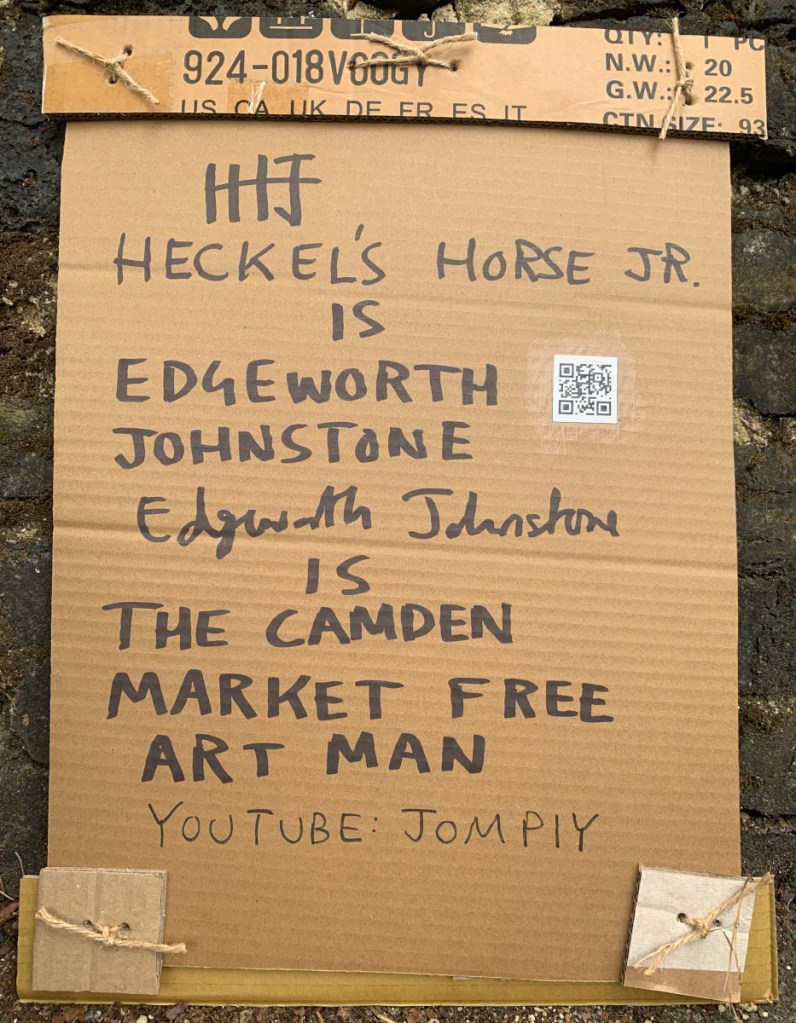 924-018V00GY
US CA UK DE FR ES IT
QTY: 1 PC
N.W.: 20
G.W.: 22.5
CTN SIZE: 93
HHJ
HECKEL'S HORSE JR.
IS
EDGEWORTH
JOHNSTONE
Edgeworth Johnstone
IS
THE CAMDEN
MARKET FREE
ART MAN
YOUTUBE: JOMPIY